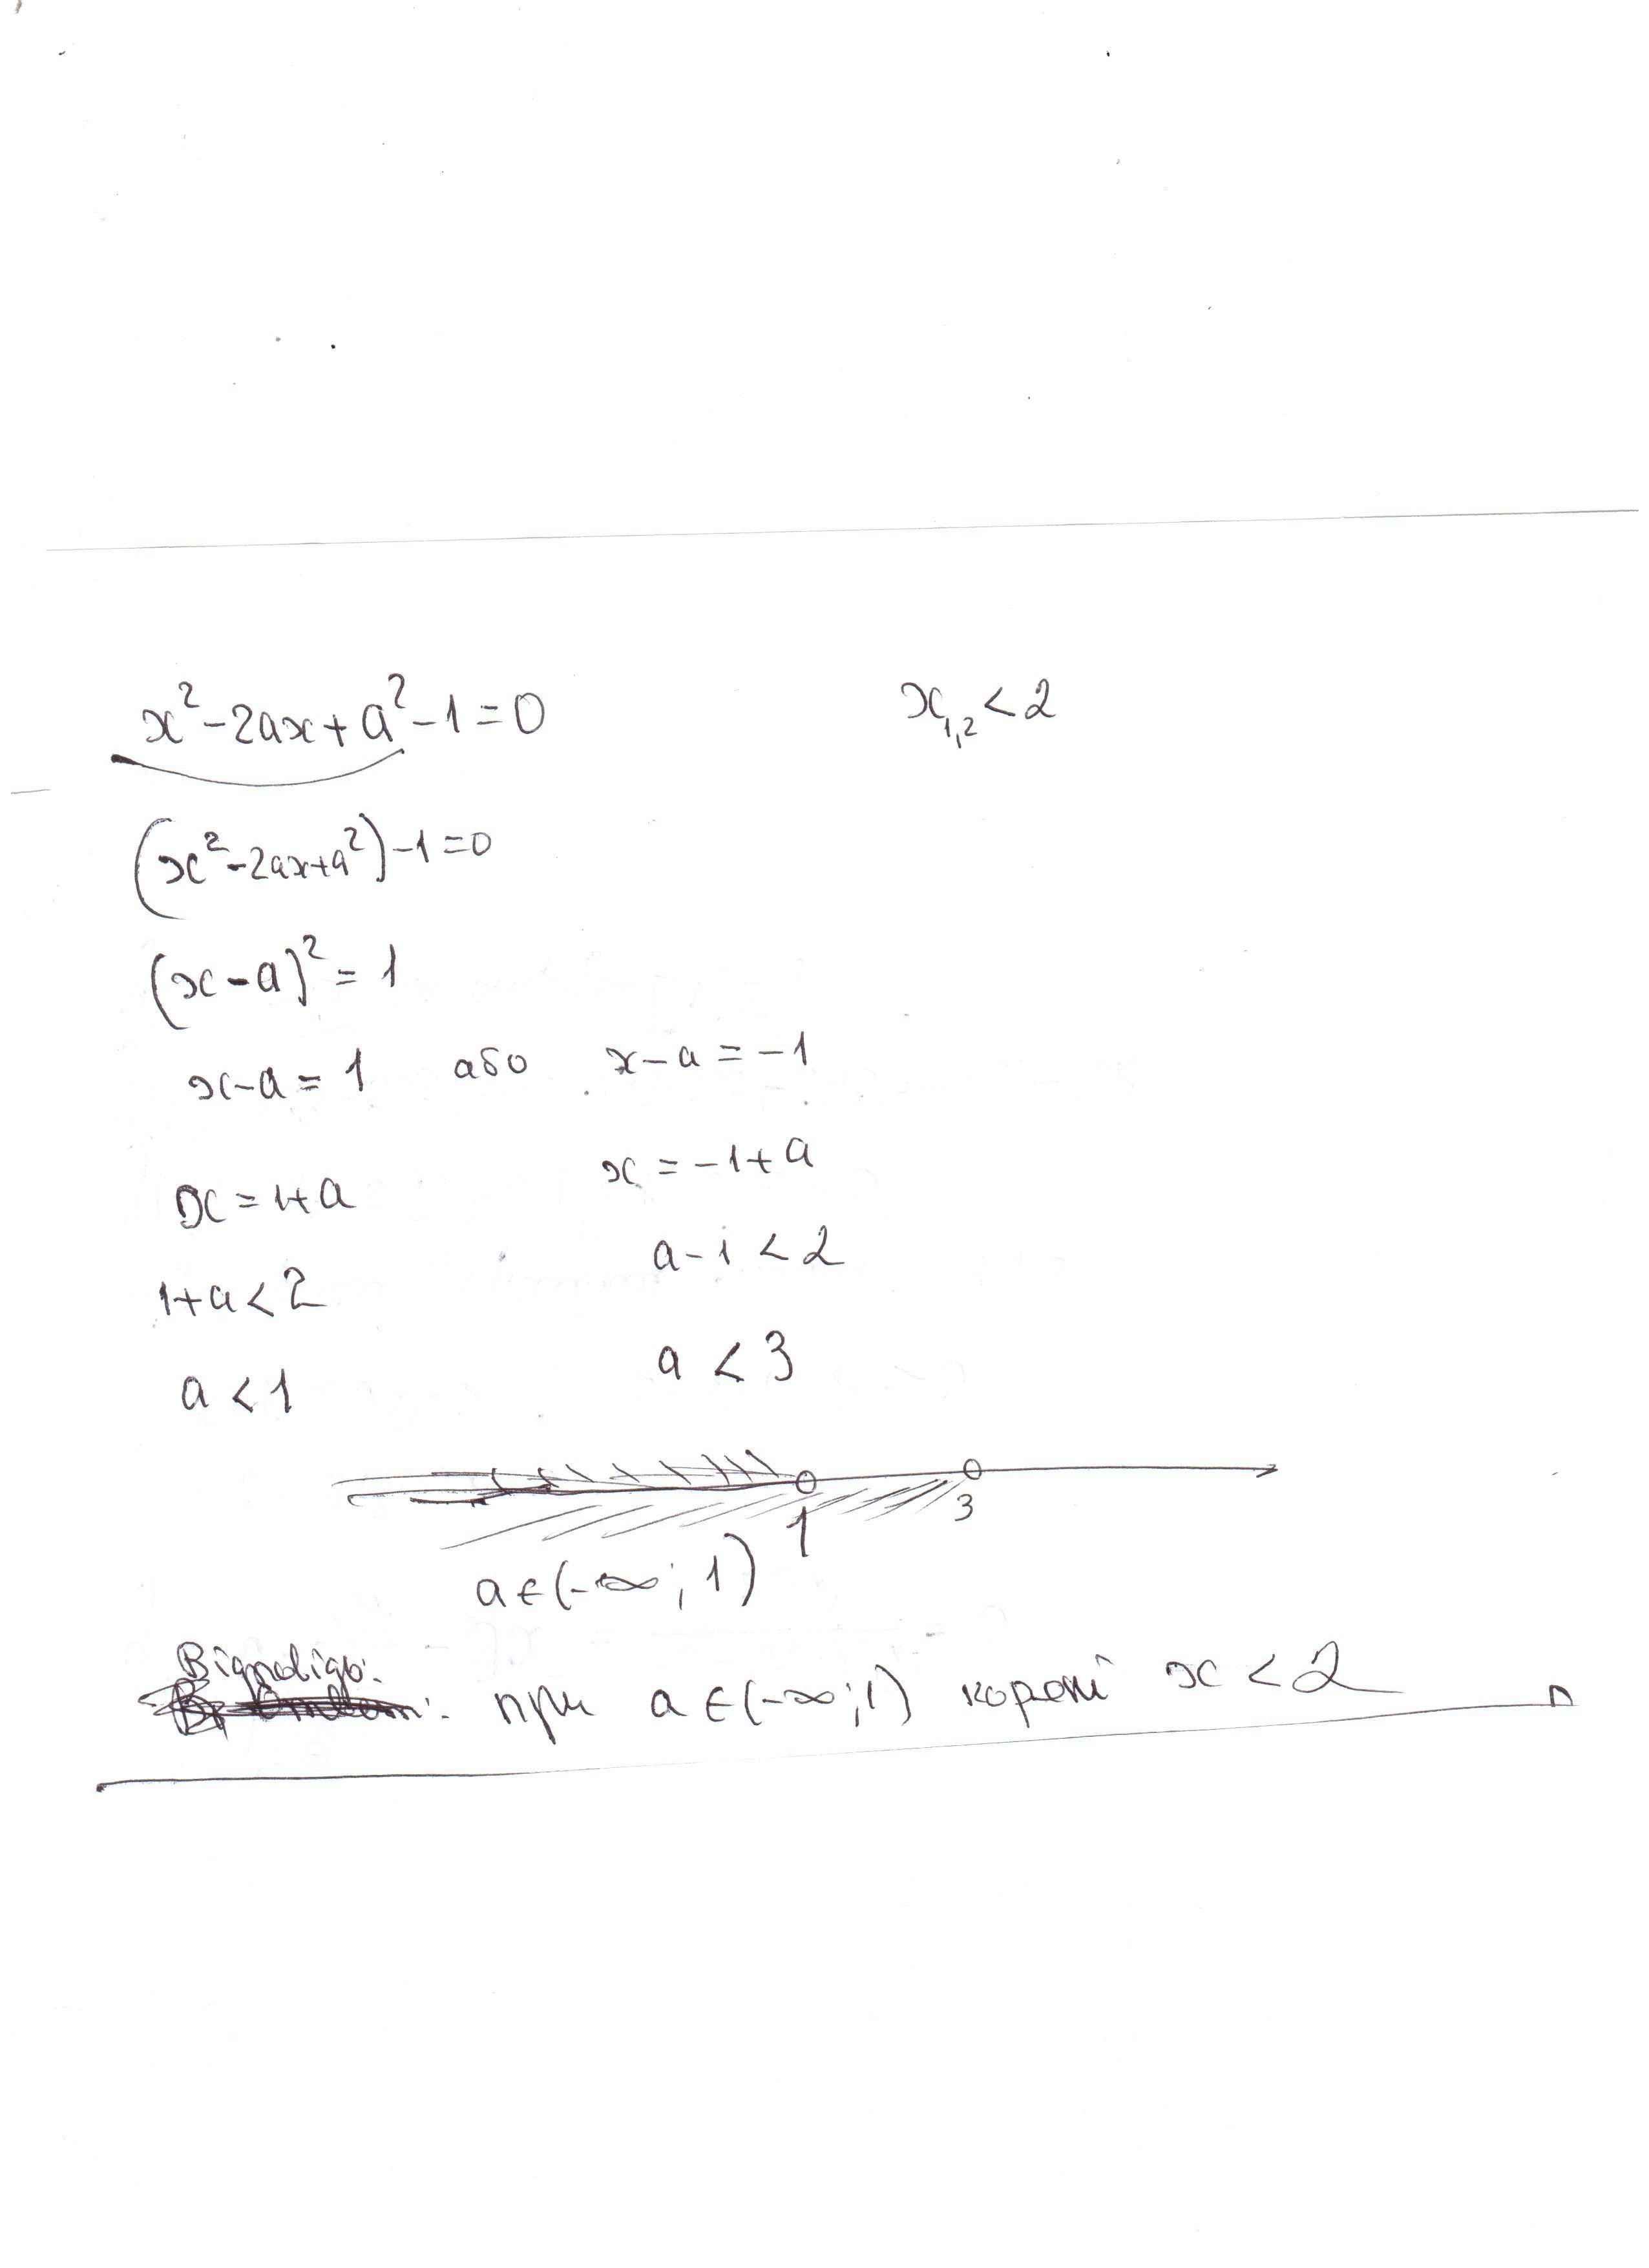 x² - 2ax + a² - 1 = 0    x₁,₂ < 2
(x² - 2ax + a²) - 1 = 0
(x - a)² = 1
x - a = 1    або    x - a = -1
x = 1 + a    x = -1 + a
1 + a < 2    a - 1 < 2
a < 1    a < 3
1    3
a ∈ (-∞; 1)
Відповідь:
при a ∈ (-∞; 1) корені x < 2